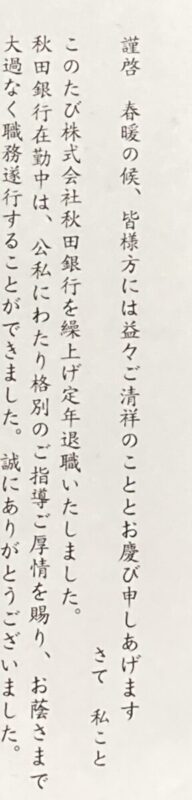 謹啓　春暖の候、皆様方には益々ご清祥のこととお慶び申しあげます
さて　私こと
このたび株式会社秋田銀行を繰上げ定年退職いたしました。
秋田銀行在勤中は、公私にわたり格別のご指導ご厚情を賜り、お蔭さまで
大過なく職務遂行することができました。誠にありがとうございました。